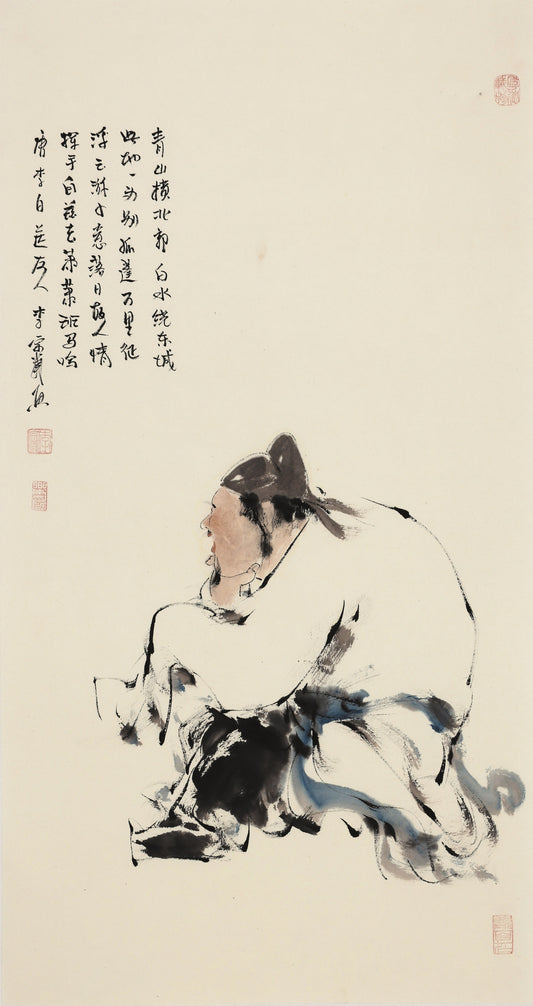 青山横北郭白水绕东城
此地一为别孤蓬万里征
浮云游子意落日故人情
挥手自兹去萧萧班马鸣
唐李白送友人 李宗